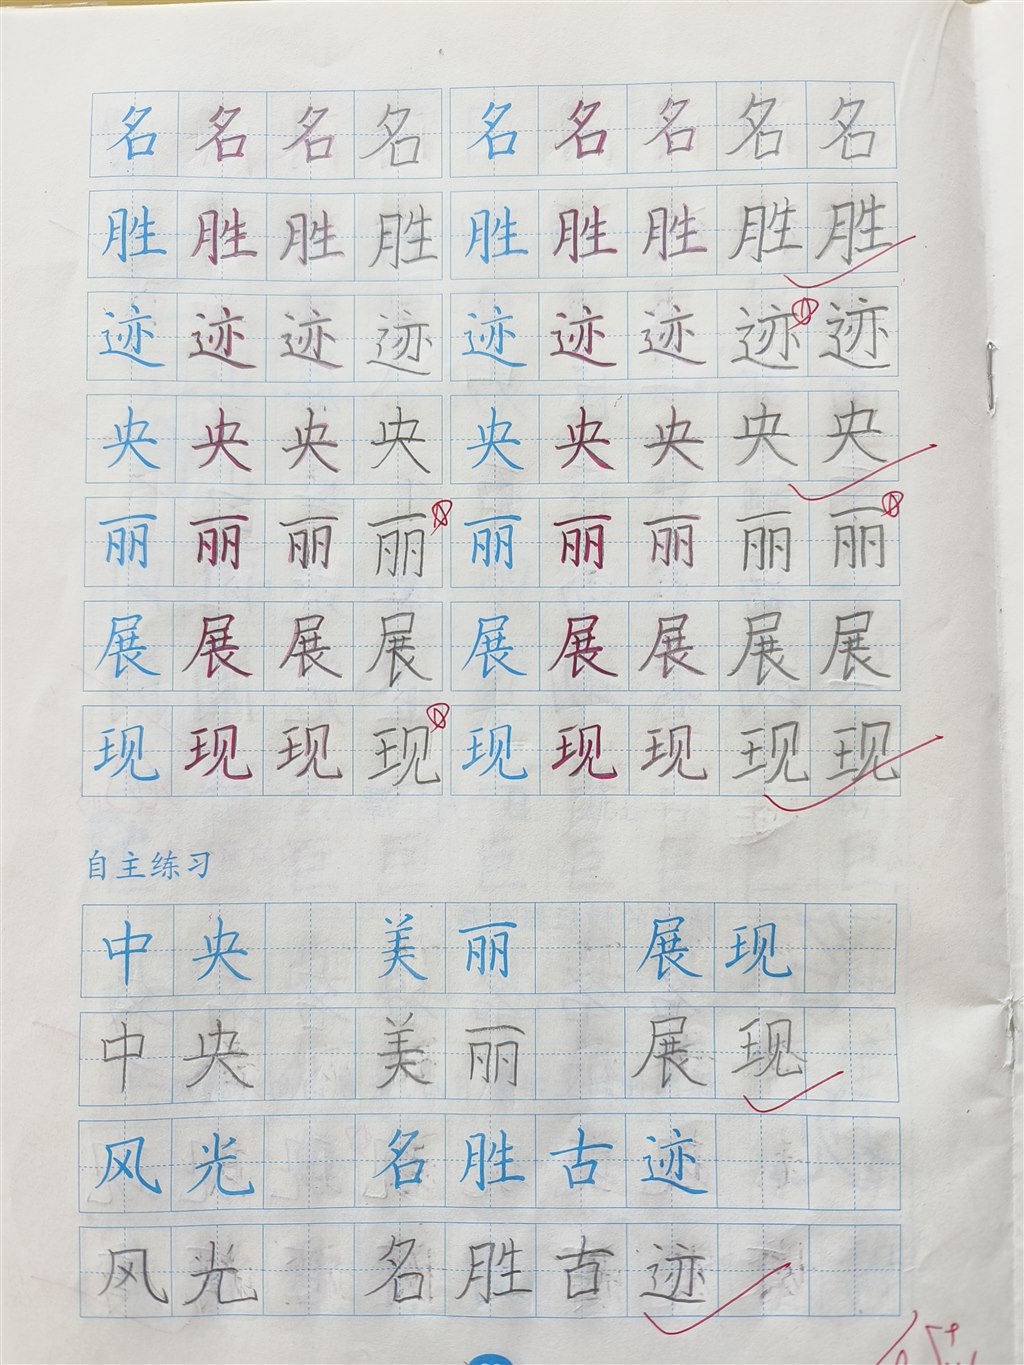 名名名名名名名名名
胜胜胜胜胜胜胜胜胜
迹迹迹迹迹迹迹迹迹
央央央央央央央央央
丽丽丽丽丽丽丽丽丽
展展展展展展展展展
现现现现现现现现现
自主练习
中央 美丽 展现
中央 美丽 展现
风光 名胜古迹
风光 名胜古迹